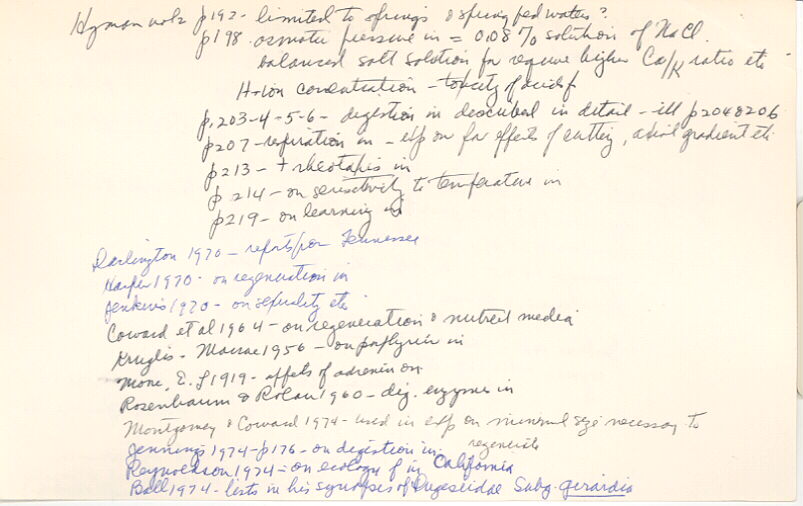 Hyman vol 2 p192 - limited to springs & spring fed waters?
p198. osmotic pressure in = 0.08% solution of NaCl.
balanced salt solution for require higher Ca/K ratio etc
H-ion concentration - toxicity of acids
p.203-4-5-6 - digestion in described in detail - ill p204&206
p207 - respiration in - exp on for effects of cutting, axial gradient etc
p213 - + rheotaxis in
p.214 - on sensitivity to temperature in
p219 - on learning in
Darlington 1970 - reports for Tennessee
Harper 1970 - on regeneration in
Jenkins 1970 - on sexuality etc
Coward et al 1964 - on regeneration & nutrient media
Kruglis - Macrae 1956 - on porphyrin in
More, E. J 1919 - affects of adrenin on
Rosenbaum & Rolon 1960 - dig. enzymes in
Montgomery & Coward 1974 - used in exp on minimal size necessary to
regenerate
Jennings 1974 - p176 - on digestion in
Reynoldson 1974 - on ecology of in California
Ball 1974 - lists in his synopses of Dugesiidae Subg. Girardia